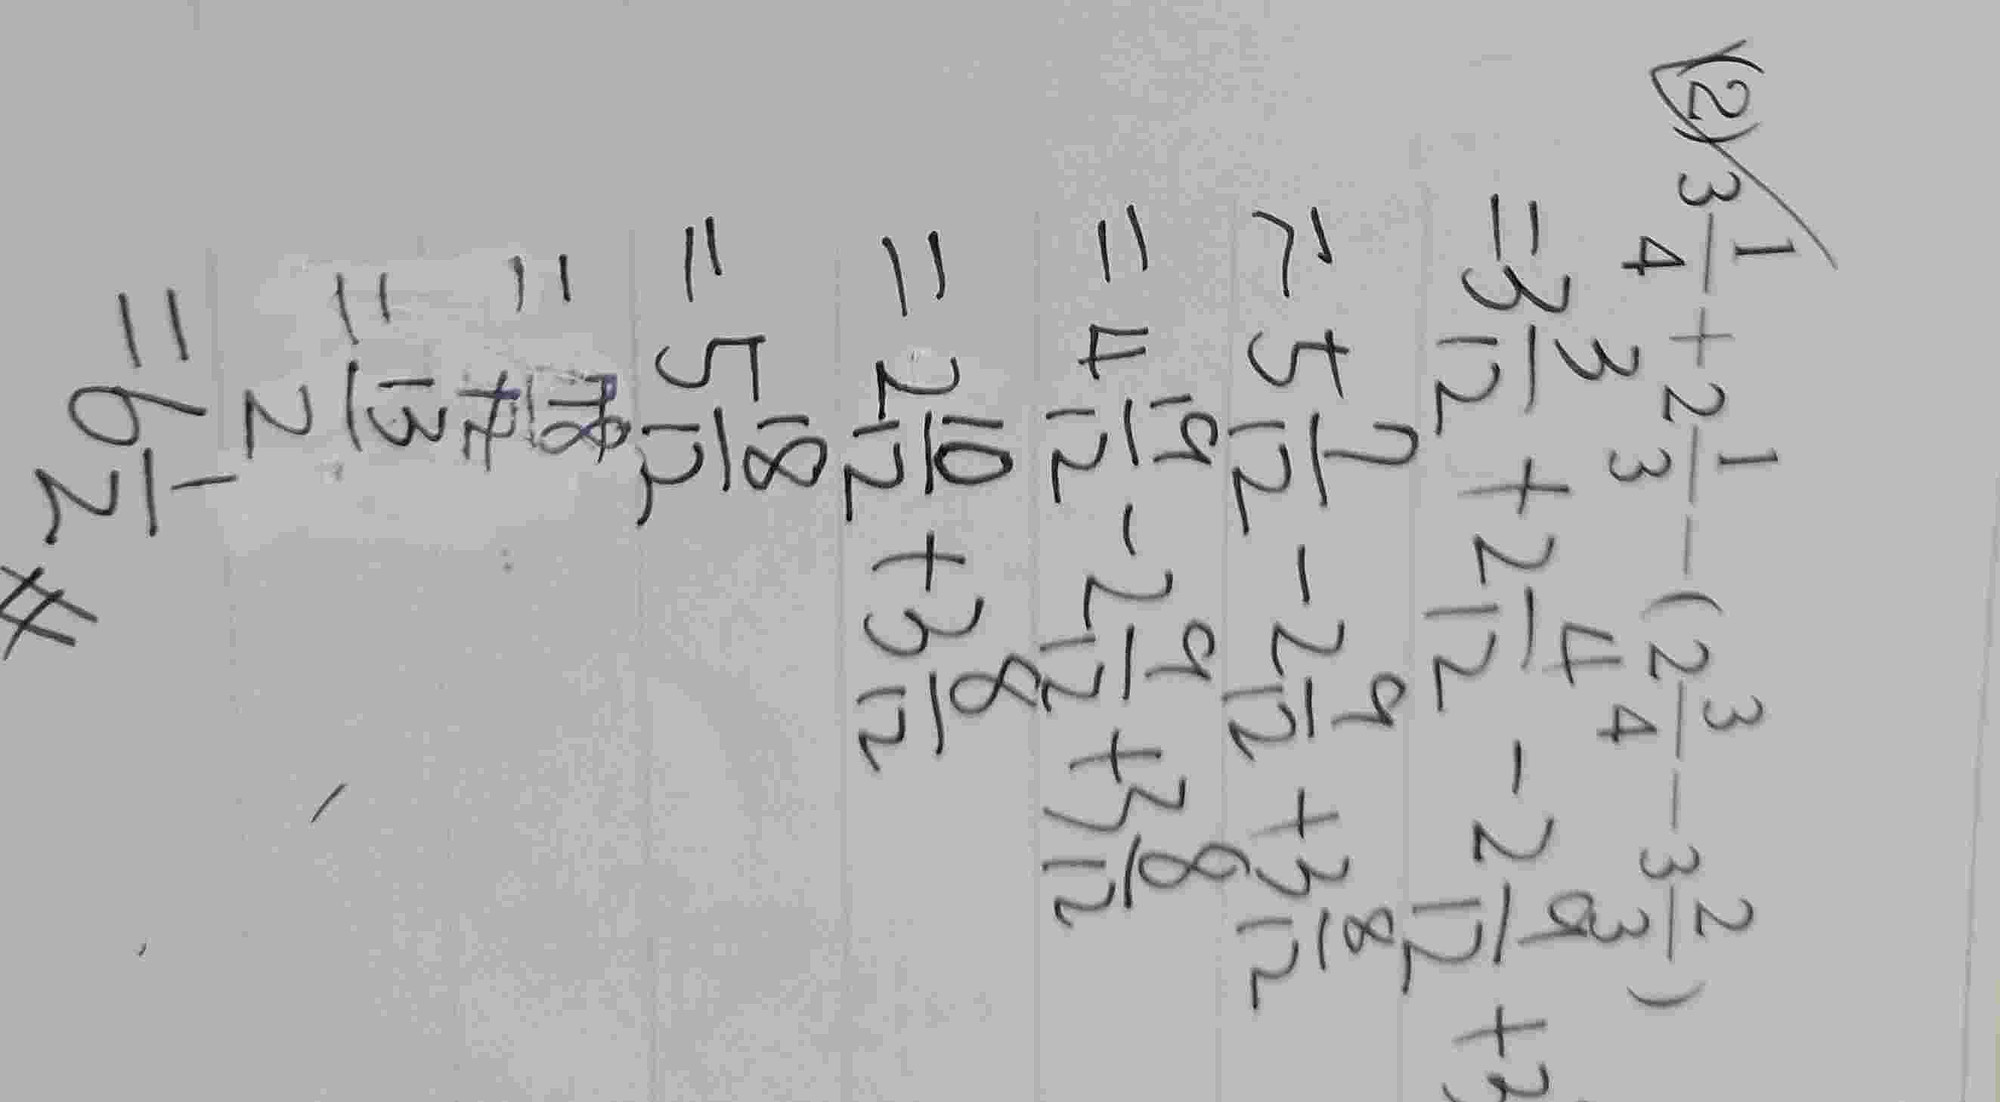 (2) 3 1/4 + 2 1/3 - (2 3/4 - 3 2/3)
= 3 3/12 + 2 4/12 - 2 9/12 + 3
= 5 7/12 - 2 9/12 + 3 8/12
= 4 19/12 - 2 9/12 + 3 8/12
= 2 10/12 + 3 8/12
= 5 18/12
=
= 13/2
= 6 1/2 #